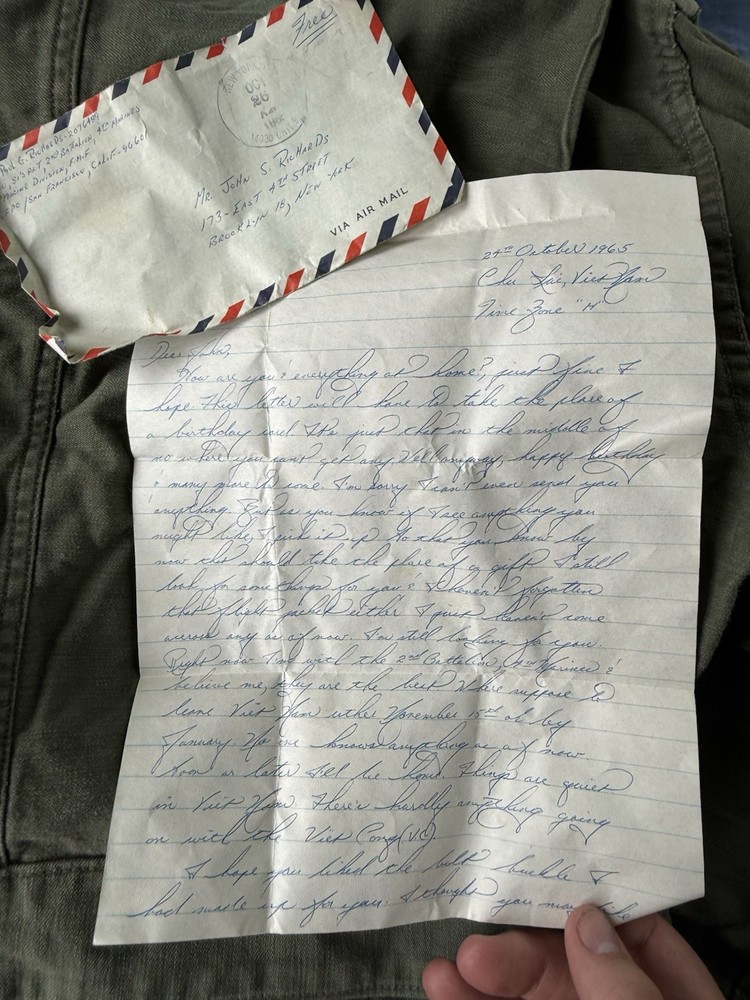 Free
NEW YORK
OCT
26
AM
Phil G. Richards-2076481
81's PLT 2nd Battalion, 4th Marines
Marine Division, F.M.F.
FPO/San Francisco, Calif.-96601
Mr. John S. Richards
173-East 4th Street
Brooklyn 18, New York
VIA AIR MAIL
24th October 1965
Chu Lai, Viet Nam
Time Zone "H"
Dear John,
How are you & everything at home?, just fine I
hope. This letter will have to take the place of
a birthday card. It's just that in the middle of
no where you cant get any. Well anyway, happy birthday
& many more to come. I'm sorry I can't even send you
anything. But as you know if I see anything you
might like, I pick it up. So that you know by
now that should take the place of a gift. I still
look for somethings for you & I haven't forgotten
that flight jacket either. I just haven't come
across any as of now. I'm still looking for you.
Right now I'm with the 2nd Battalion, 4th Marines &
believe me, they are the best. Where suppose to
leave Viet Nam either November 15th or by
January. No one knows anything as of now.
Soon or later I'll be home. Things are quiet
in Viet Nam. There's hardly anything going
on with the Viet Cong (VC).
I hope you liked the belt buckle I
had made up for you. I thought you may like